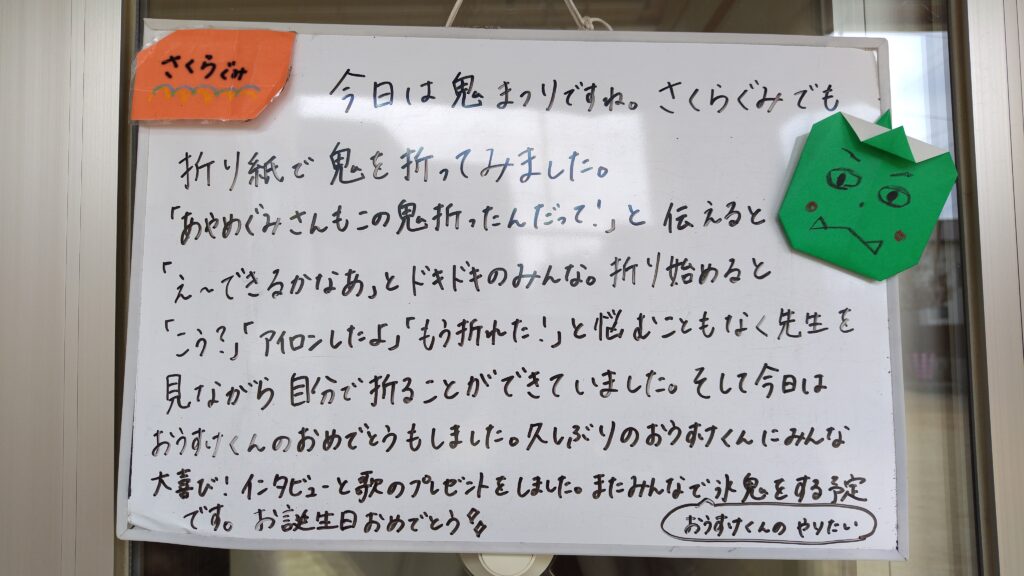 さくらぐみ
今日は鬼まつりですね。さくらぐみでも
折り紙で鬼を折ってみました。
「あやめぐみさんもこの鬼折ったんだって!」と伝えると
「え〜できるかなあ」とドキドキのみんな。折り始めると
「こう?」「アイロンしたよ」「もう折れた!」と悩むこともなく先生を
見ながら自分で折ることができていました。そして今日は
おうすけくんのおめでとうもしました。久しぶりのおうすけくんにみんな
大喜び!インタビューと歌のプレゼントをしました。またみんなで氷鬼をする予定
です。お誕生日おめでとう
おうすけくんのやりたい